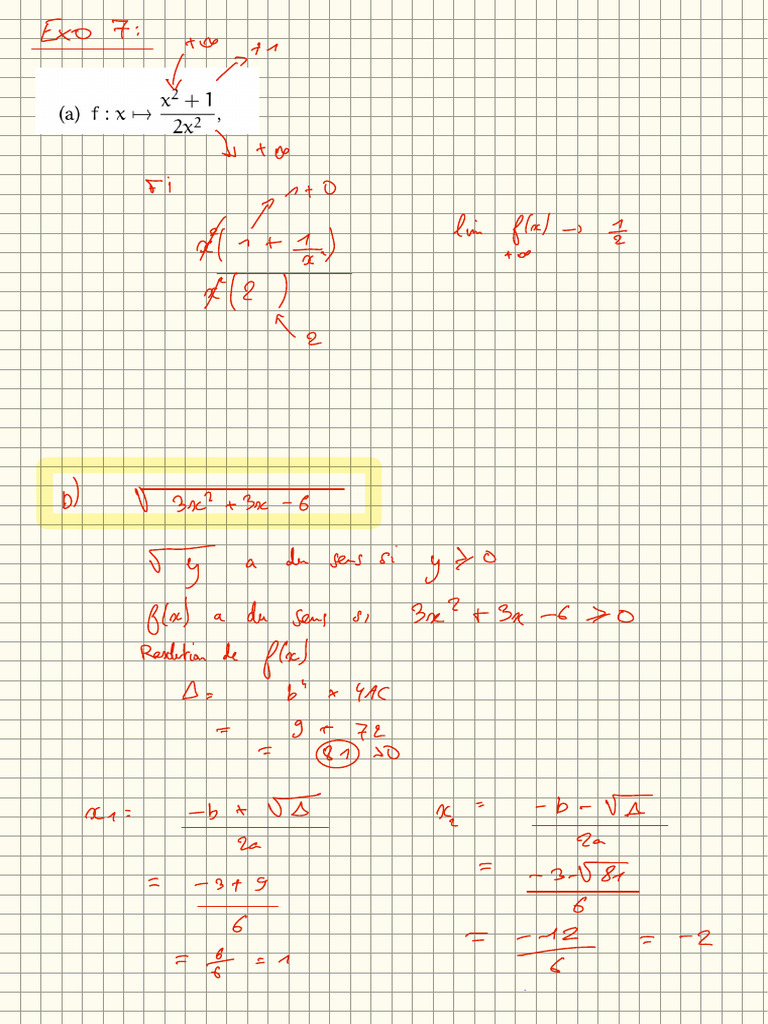 Exo 7:
+∞ +1
(a) f : x ↦ (x² + 1)/(2x²),
+∞
1 + 0
x²(1 + 1/x²)
x²(2)
2
lim f(x) → 1/2
+∞
b) √(3x² + 3x - 6)
√y a du sens si y ≥ 0
f(x) a du sens si 3x² + 3x - 6 ≥ 0
Resolution de f(x)
Δ =
= 9 + 72
= 81 > 0
x₁ = (-b + √Δ)/(2a)
= (-3 + 9)/6
= 6/6 = 1
x₂ = (-b - √Δ)/(2a)
= (-3 - √81)/6
= -12/6 = -2